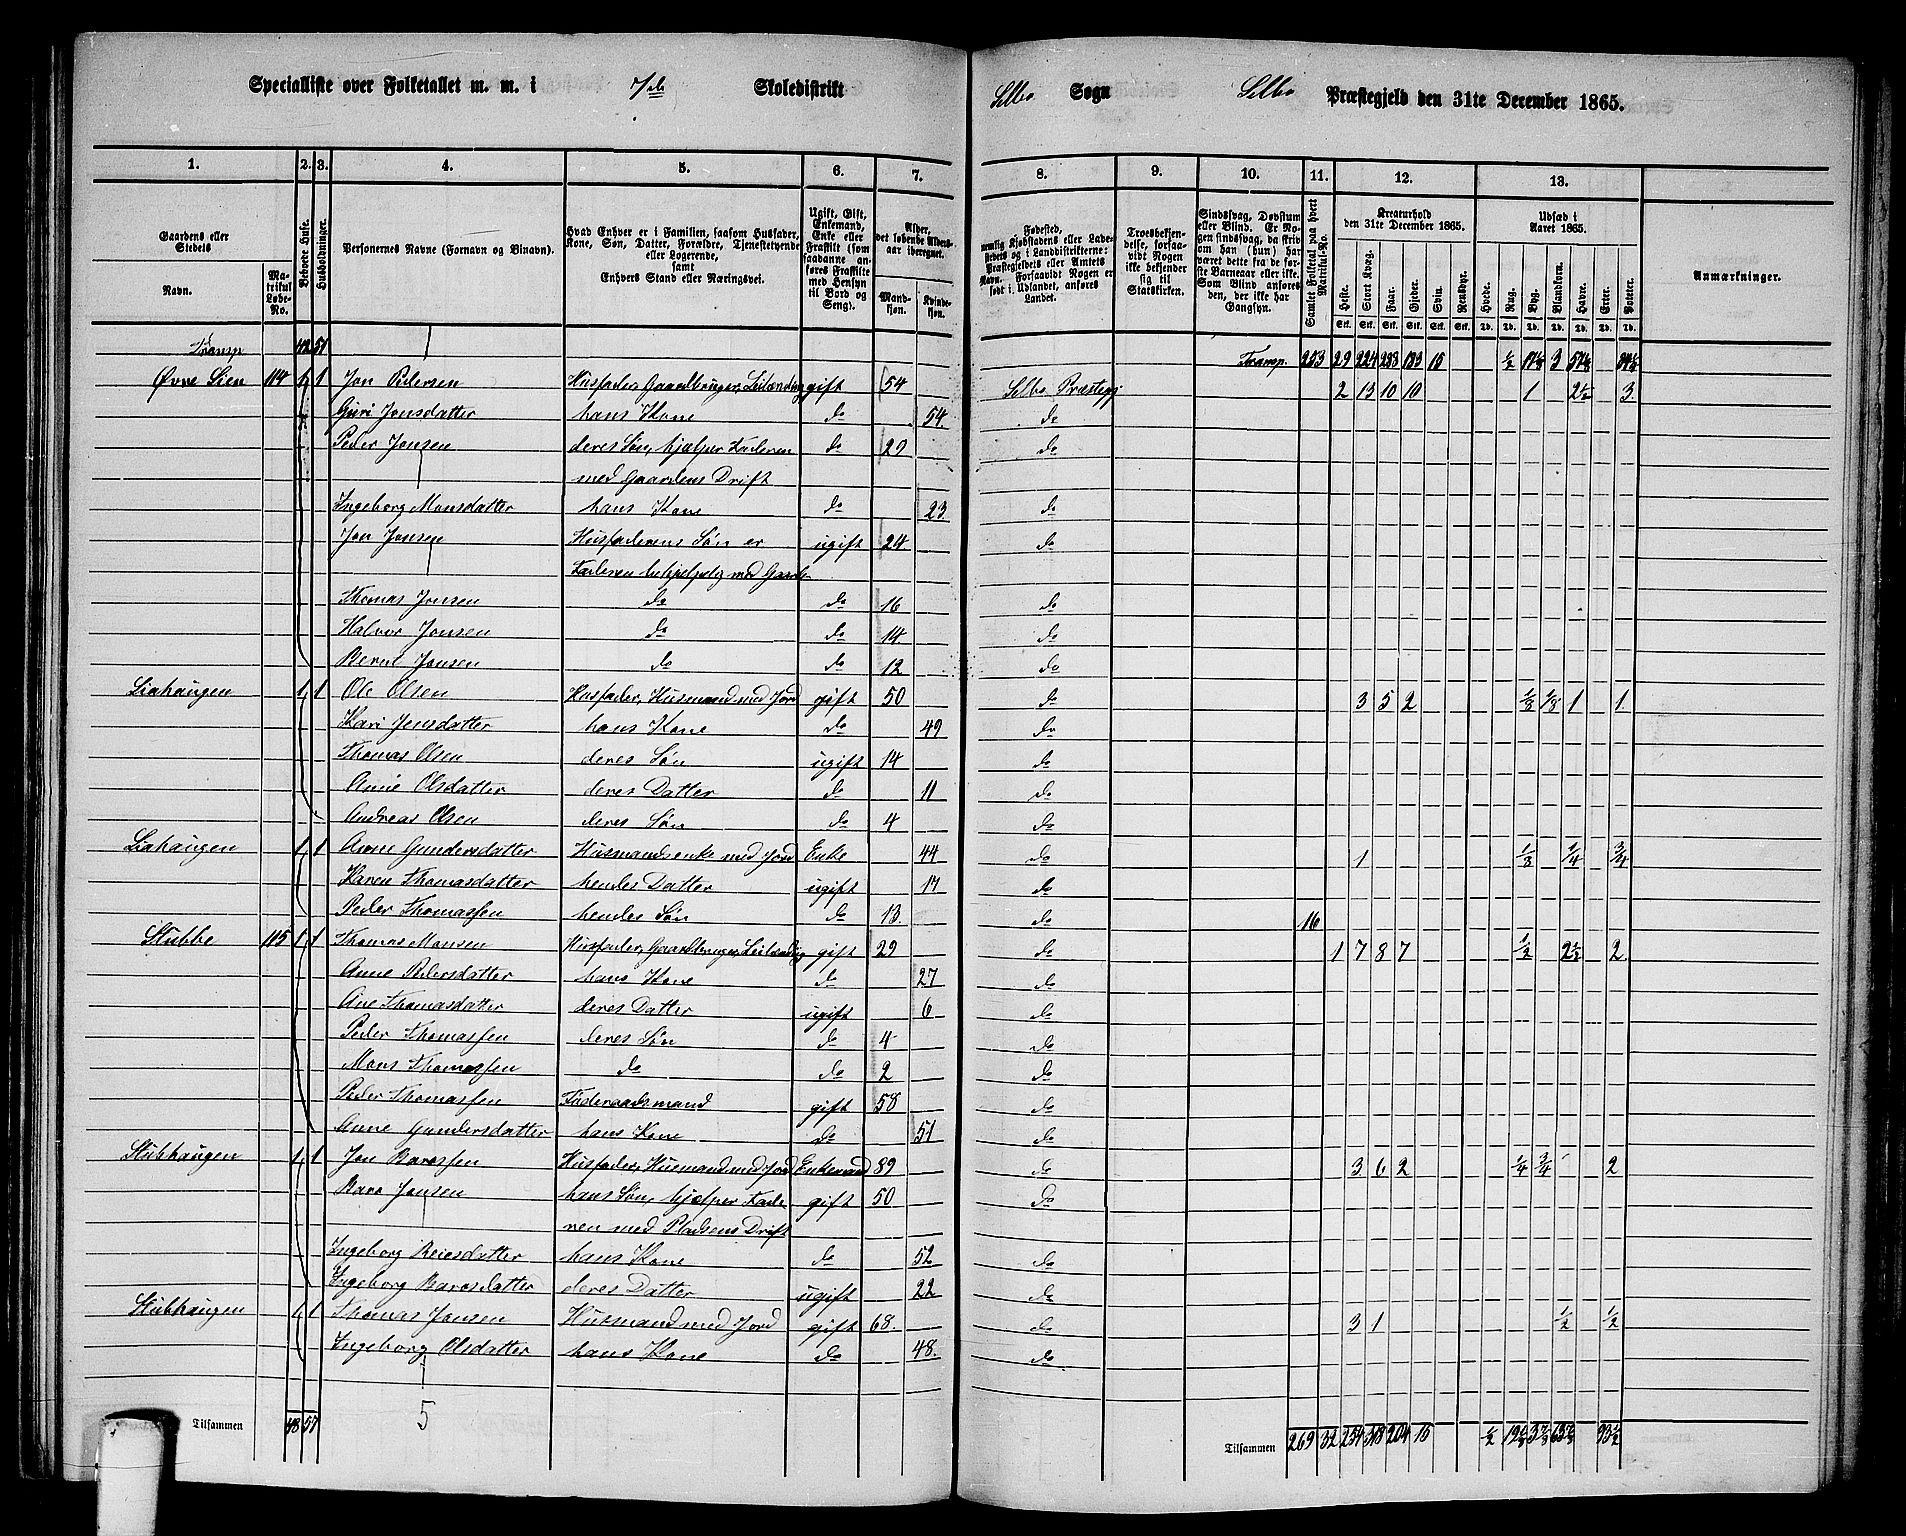 Specialliste over Folketallet m. m. i 7de Skoledistrikt Selbo Sogn Selbo Præstegjeld den 31te December 1865.
1. 2. 3. 4. 5. 6. 7. 8. 9. 10. 11. 12. 13.
Gaardens eller Stedets
Navn.
Matrikul Løbe-No.
Beboede Huse.
Husholdninger.
Personernes Navne (Fornavn og Binavn).
Hvad Enhver er i Familien, saasom Husfader, Kone, Søn, Datter, Forældre, Tjenestetyende eller Logerende, samt Enhvers Stand eller Næringsvei.
Ugift, Gift, Enkemand, Enke eller Fraskilt (som saadanne anføres Fraskilte med Hensyn til Bord og Seng).
Alder, det løbende Aldersaar iberegnet.
Mandkjøn. Kvindekjøn.
Fødested, nemlig Kjøbstadens eller Ladestedets og i Landdistrikterne: Præstegjeldets eller Amtets Navn. Forsaavidt Nogen er født i Udlandet, anføres Landet.
Troesbekjendelse, forsaavidt Nogen ikke bekjender sig til Statskirken.
Sindssvag, Døvstum eller Blind. Er Nogen sindssvag, da skriv om han (hun) har været dette fra de første Barneaar eller ei. Som Blind anføres den, der ikke har Gangsyn.
Samlet Folketal paa hvert Matrikul-No.
Kreaturhold den 31te December 1865.
Heste. Stort Kvæg. Faar. Gjeder. Svin. Rensdyr.
Udsæd i Aaret 1865.
Hvede. Rug. Byg. Blandkorn. Havre. Erter. Poteter.
Anmærkninger.
Transp 42 51 Transp. 253 29 224 283 183 15 ½
Øvre Lien 114 1 1 Jon Pedersen Husfader, Gaardbruger, Leilænding gift 54 Selbo Præstegj 2 13 10 10 1 2½ 3
Guri Jonsdatter hans Kone do 54. do
Peder Jonsen deres Søn, hjælper Faderen do 29 do
med Gaardens Drift
Ingeborg Monsdatter hans Kone do 23. do
Jon Jonsen Husfaderens Søn er ugift 24 do
Faderen behjelpelig med Gaarde
Thomas Jonsen do do 16 do
Halvor Jonsen do do 14 do
Bernt Jonsen do do 12 do
Liahaugen 1 1 Ole Olsen Husfader, Husmand med Jord gift 50 do 3 5 2 ⅛ ⅛ 1 1
Kari Jonsdatter hans Kone do 49 do
Thomas Olsen deres Søn ugift 14 do
Anne Olsdatter deres Datter do 11 do
Andreas Olsen deres Søn do 4 do
Liahaugen 1 1 Anne Gundersdatter Husmandsenke med Jord Enke 44 do 1 ⅛ ¼ ¾
Karen Thomasdatter hendes Datter ugift 17 do
Peder Thomassen hendes Søn do 13. do 16
Stubbe 115 1 1 Thomas Monsen Husfader, Gaardbruger, Leilænding gift 29 do 1 7 8 7 ½ 2½ 2
Anne Pedersdatter hans Kone do 27 do
Ane Thomasdatter deres Datter ugift 6 do
Peder Thomassen deres Søn do 4 do
Mons Thomassen do do 2 do
Peder Thomassen Føderaadsmand gift 58 do
Anne Gundersdatter hans Kone do 51 do
Stubhaugen 1 1 Jon Baressen Husfader, Husmand med Jord Enkemand 89 do 3 6 2 ¼ ¾ 2
Baro Jonsen hans Søn, hjælper Fade- gift 50 do
ren med Pladsens Drift
Ingeborg Reiersdatter hans Kone do 52 do
Ingeborg Barosdatter deres Datter ugift 22 do
Stubhaugen 1 1 Thomas Jonsen Husmand med Jord gift 68. do 3 1 ½ ½
Ingeborg Olsdatter hans Kone do 48. do
Tilsammen 48 57 5 Tilsammen 269 32 254 318 204 15 ½